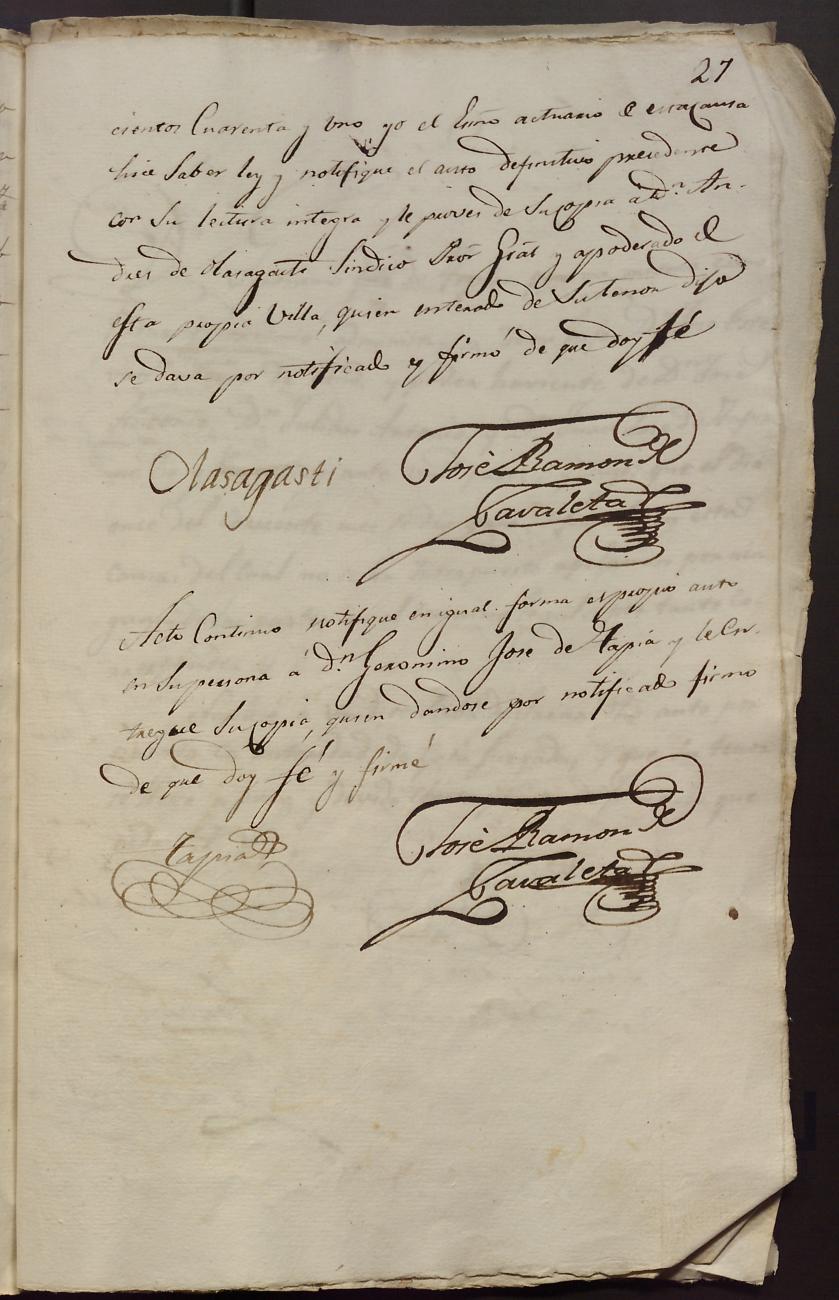 27
cientos Cuarenta y uno yo el Esno actuario de esta causa
hice saber ley y notifique el auto definitivo precedente
con su lectura integra y le provei de su copia a dn. An-
dres de Olasagasti Sindico Pror Gral y apoderado de
esta propia Villa, quien enterado de su tenor dijo
se dava por notificado y firmó de que doy fé
Olasagasti
José Ramon de
Zavaleta
Acto Continuo notifique en igual forma el propio auto
en su persona á dn. Geronimo Jose de Tapia y le en-
tregue su copia, quien dandose por notificado firmo
de que doy fé y firmé
Tapia
José Ramon de
Zavaleta